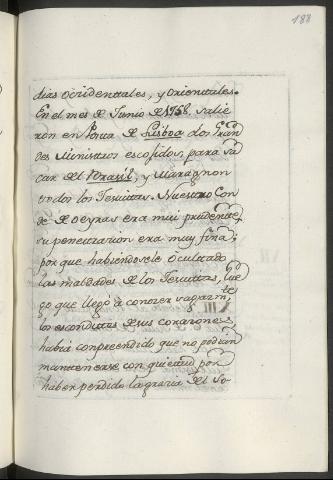 188
dias occidentales, y orientales.
En el mes de Junio de 1758. salie
ron en Porta de Lisboa dos Gran
des Ministros escojidos, para sa
car del Brasil, y Marañon
todos los Jesuitas. Nuestro Con
de de Oeyras era mui prudente,
su penetracion era muy fina;
por que habiendosele ocultado
las maldades de los Jesuitas, lue
go que llegó à conocer sagazm.te
los escondites de sus corazones
habia conprendido que no podian
mantenerse con quietud por
haber perdido la gracia del So-